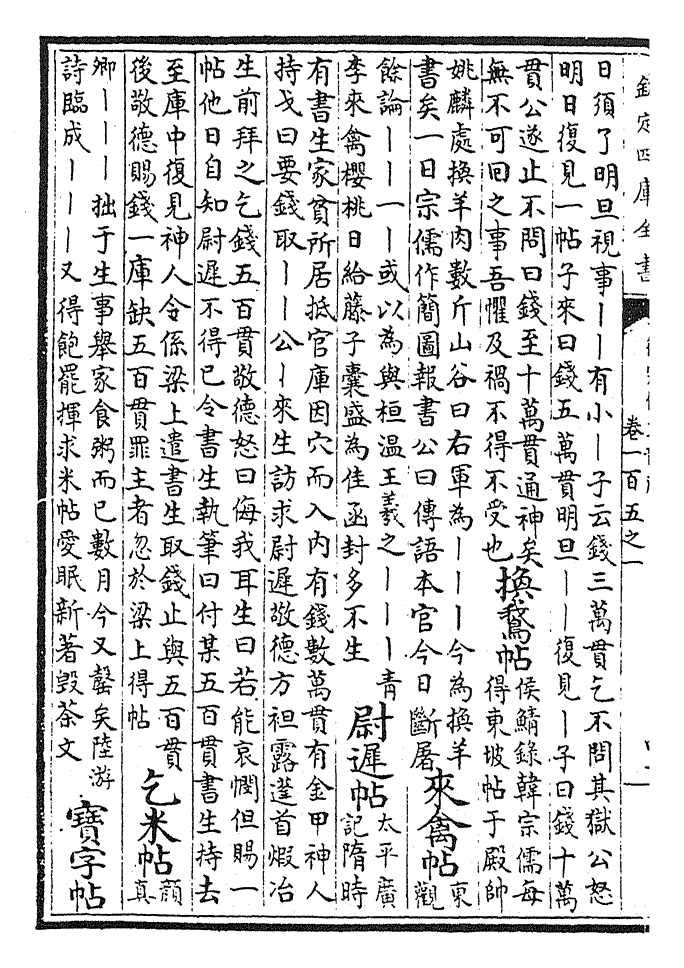 欽定四庫全書
卷一百五之一
日須了明旦視事丨丨有小丨子云錢三萬貫乞不問其獄公怒
明日復見一帖子來曰錢五萬貫明旦丨丨復見丨子曰錢十萬
貫公遂止不問曰錢至十萬貫通神矣
無不可回之事吾懼及禍不得不受也
換鵞帖
侯鯖錄韓宗儒每
得東坡帖于殿帥
姚麟處換羊肉數斤山谷曰右軍為丨丨丨今為換羊
書矣一日宗儒作簡圖報書公曰傳語本官今日斷屠
來禽帖
東
觀
餘論丨丨一丨或以為與桓温王羲之丨丨丨青
李來禽櫻桃日給藤子囊盛為佳函封多不生
尉遲帖
太平廣
記隋時
有書生家貧所居抵官庫因穴而入内有錢數萬貫有金甲神人
持戈曰要錢取丨丨公丨來生訪求尉遲敬德方袒露蓬首煆冶
生前拜之乞錢五百貫敬德怒曰侮我耳生曰若能哀憫但賜一
帖他日自知尉遲不得已令書生執筆曰付某五百貫書生持去
至庫中復見神人令係梁上遣書生取錢止與五百貫
後敬德賜錢一庫缺五百貫罪主者忽於梁上得帖
乞米帖
顔
真
卿丨丨丨拙于生事舉家食粥而已數月今又罄矣陸游
詩臨成丨丨丨又得飽罷揮求米帖愛眠新著毁茶文
寶字帖